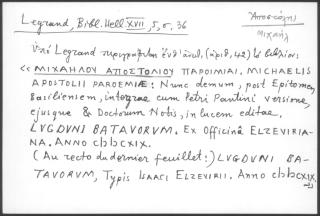 Legrand, Bibl. Hell XVII, 5, σ, 36
Ἀποστόλης
Μιχαήλ
Ὑπὸ Legrand περιγράφεται ἐνθ' ἀνωτ. (ἀριθ, 42) ὡς
« ΜΙΧΑΗΛΟΥ ΑΠΟΣΤΟΛΙΟΥ ΠΑΡΟΙΜΙΑΙ. MICHAELIS
APOSTOLII PAROEMIÆ: Nunc demum, post Epitomen
Basilieniem, integrae cum Petri Pantini versione,
ejusque & Doctorum Notis, in lucem editae.
LVGDVNI BATAVORVM. Ex Officinâ ELZEVIRIA-
NA. ANNO CIƆIƆCXIX.
(Au recto du dernier feuillet:) LVGDVNI BA-
TAVORVM, Typis ISAACI ELZEVIRII. Anno CIƆIƆCXIX.